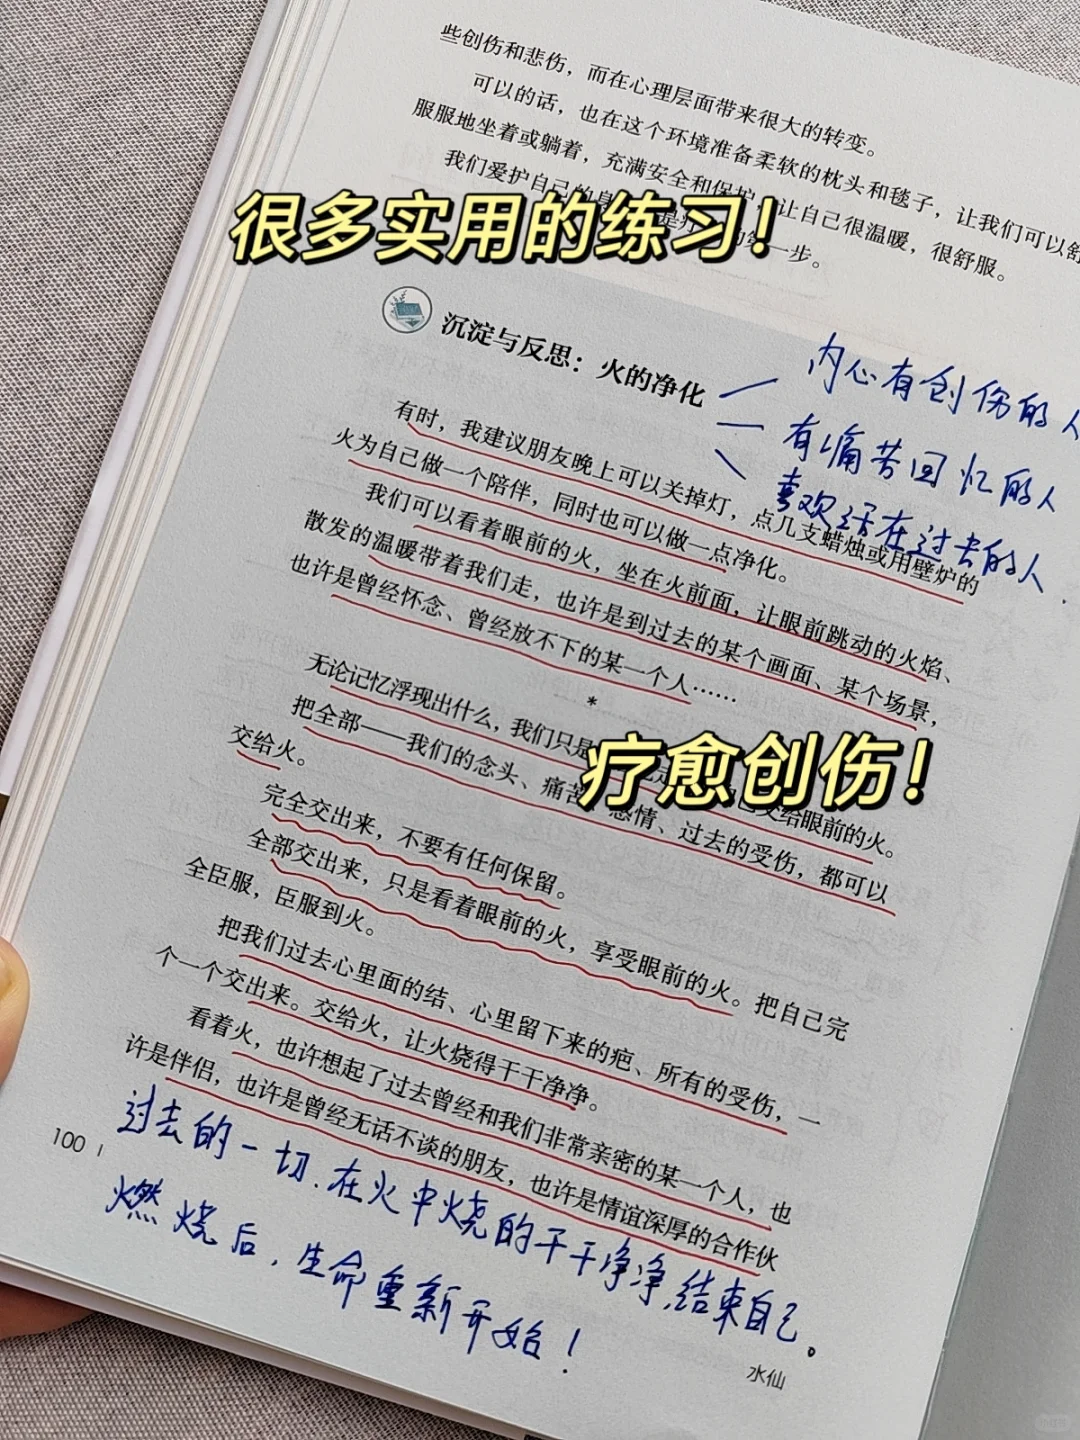 些创伤和悲伤，而在心理层面带来很大的转变。
可以的话，也在这个环境准备柔软的枕头和毯子，让我们可以舒
服服地坐着或躺着，充满安全和保护，让自己很温暖，很舒服。
我们爱护自己的身
一步。
很多实用的练习！
沉淀与反思：火的净化
内心有创伤的人
有痛苦回忆的人
喜欢活在过去的人
有时，我建议朋友晚上可以关掉灯，点几支蜡烛或用壁炉的
火为自己做一个陪伴，同时也可以做一点净化。
我们可以看着眼前的火，坐在火前面，让眼前跳动的火焰、
散发的温暖带着我们走，也许是到过去的某个画面、某个场景，
也许是曾经怀念、曾经放不下的某一个人……
*
无论记忆浮现出什么，我们只是
交给眼前的火。
疗愈创伤！
把全部——我们的念头、痛苦、感情、过去的受伤，都可以
交给火。
完全交出来，不要有任何保留。
全部交出来，只是看着眼前的火，享受眼前的火。把自己完
全臣服，臣服到火。
把我们过去心里面的结、心里留下来的疤、所有的受伤，一
个一个交出来。交给火，让火烧得干干净净。
看着火，也许想起了过去曾经和我们非常亲密的某一个人，也
许是伴侣，也许是曾经无话不谈的朋友，也许是情谊深厚的合作伙
100
过去的一切.在火中烧的干干净净,结束自己。
燃烧后，生命重新开始！
水仙